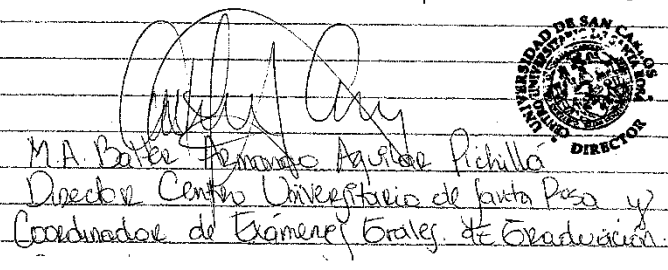 UNIVERSIDAD DE SAN CARLOS
CENTRO UNIVERSITARIO DE SANTA ROSA
DIRECTOR
M.A. Armando Aguilar Pichillá
Director Centro Universitario de Santa Rosa y
Coordinador de Exámenes Orales de Graduación.